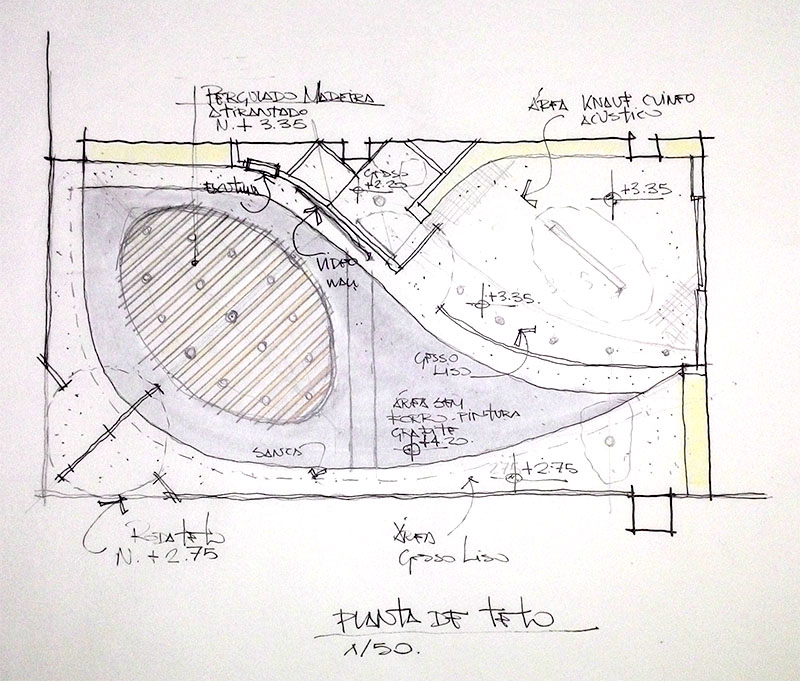 PERGOLADO MADEIRA
ATIRANTADO
N. + 3.35
ÁREA KNAUF CUINEO
ACUSTICO
GESSO
+2.20
+3.35
VIDEO
WALL
+3.35.
GESSO
LISO
ÁREA SEM
FORRO-PINTURA
GRAFITE
+4.20
SANCA
275
+2.75
RODATETO
N. + 2.75
ÁREA
GESSO LISO
PLANTA DE TETO
1/50.